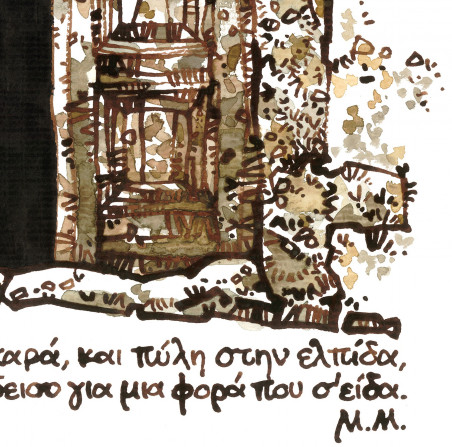 χαρά, και πύλη στην ελπίδα,
για μια φορά που σ'είδα.
Μ.Μ.